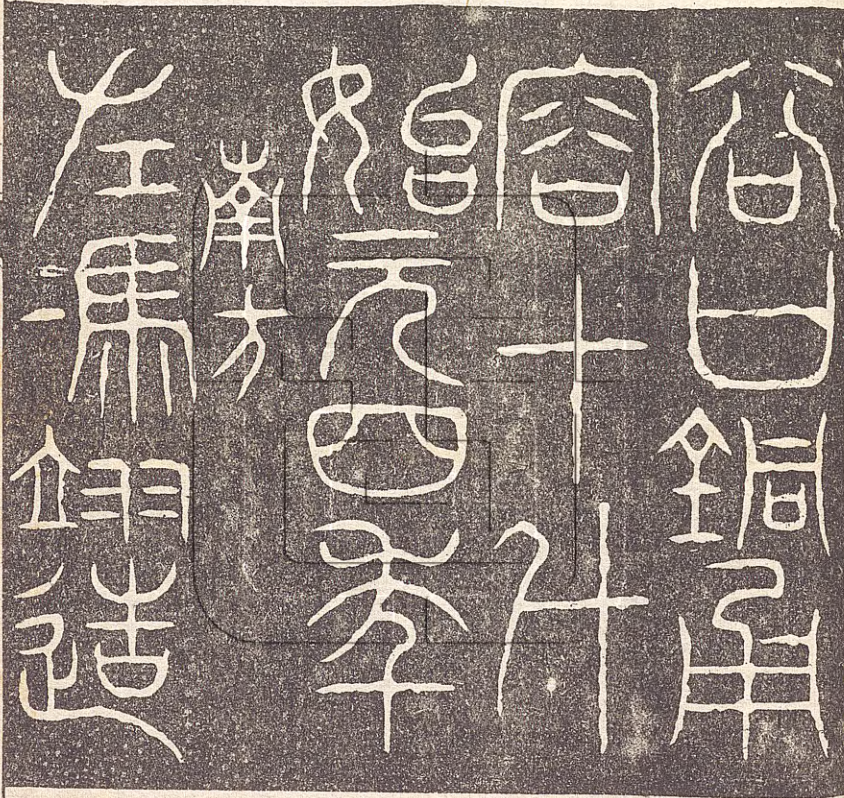 谷口銅甬
容十斗
始元四年
南方
左馮翊造